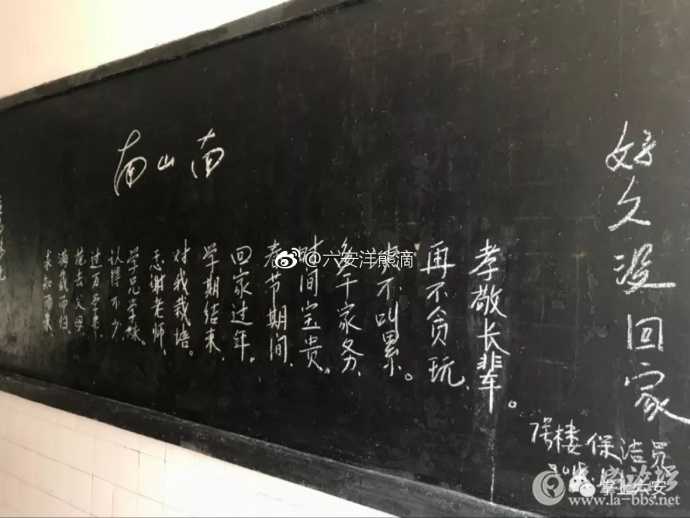 南山南
求知而来
满载而归
花去父母
过百
认得不少
学兄学妹
谢老师,
对我栽培。
学期结束,
回家过年,
春节期间,
时间宝贵。
多干家务,
不叫累。
再不贪玩,
孝敬长辈。
好久没回家
7号楼保洁员
@六安洋熊滴
掌上六安
www.la-bbs.net